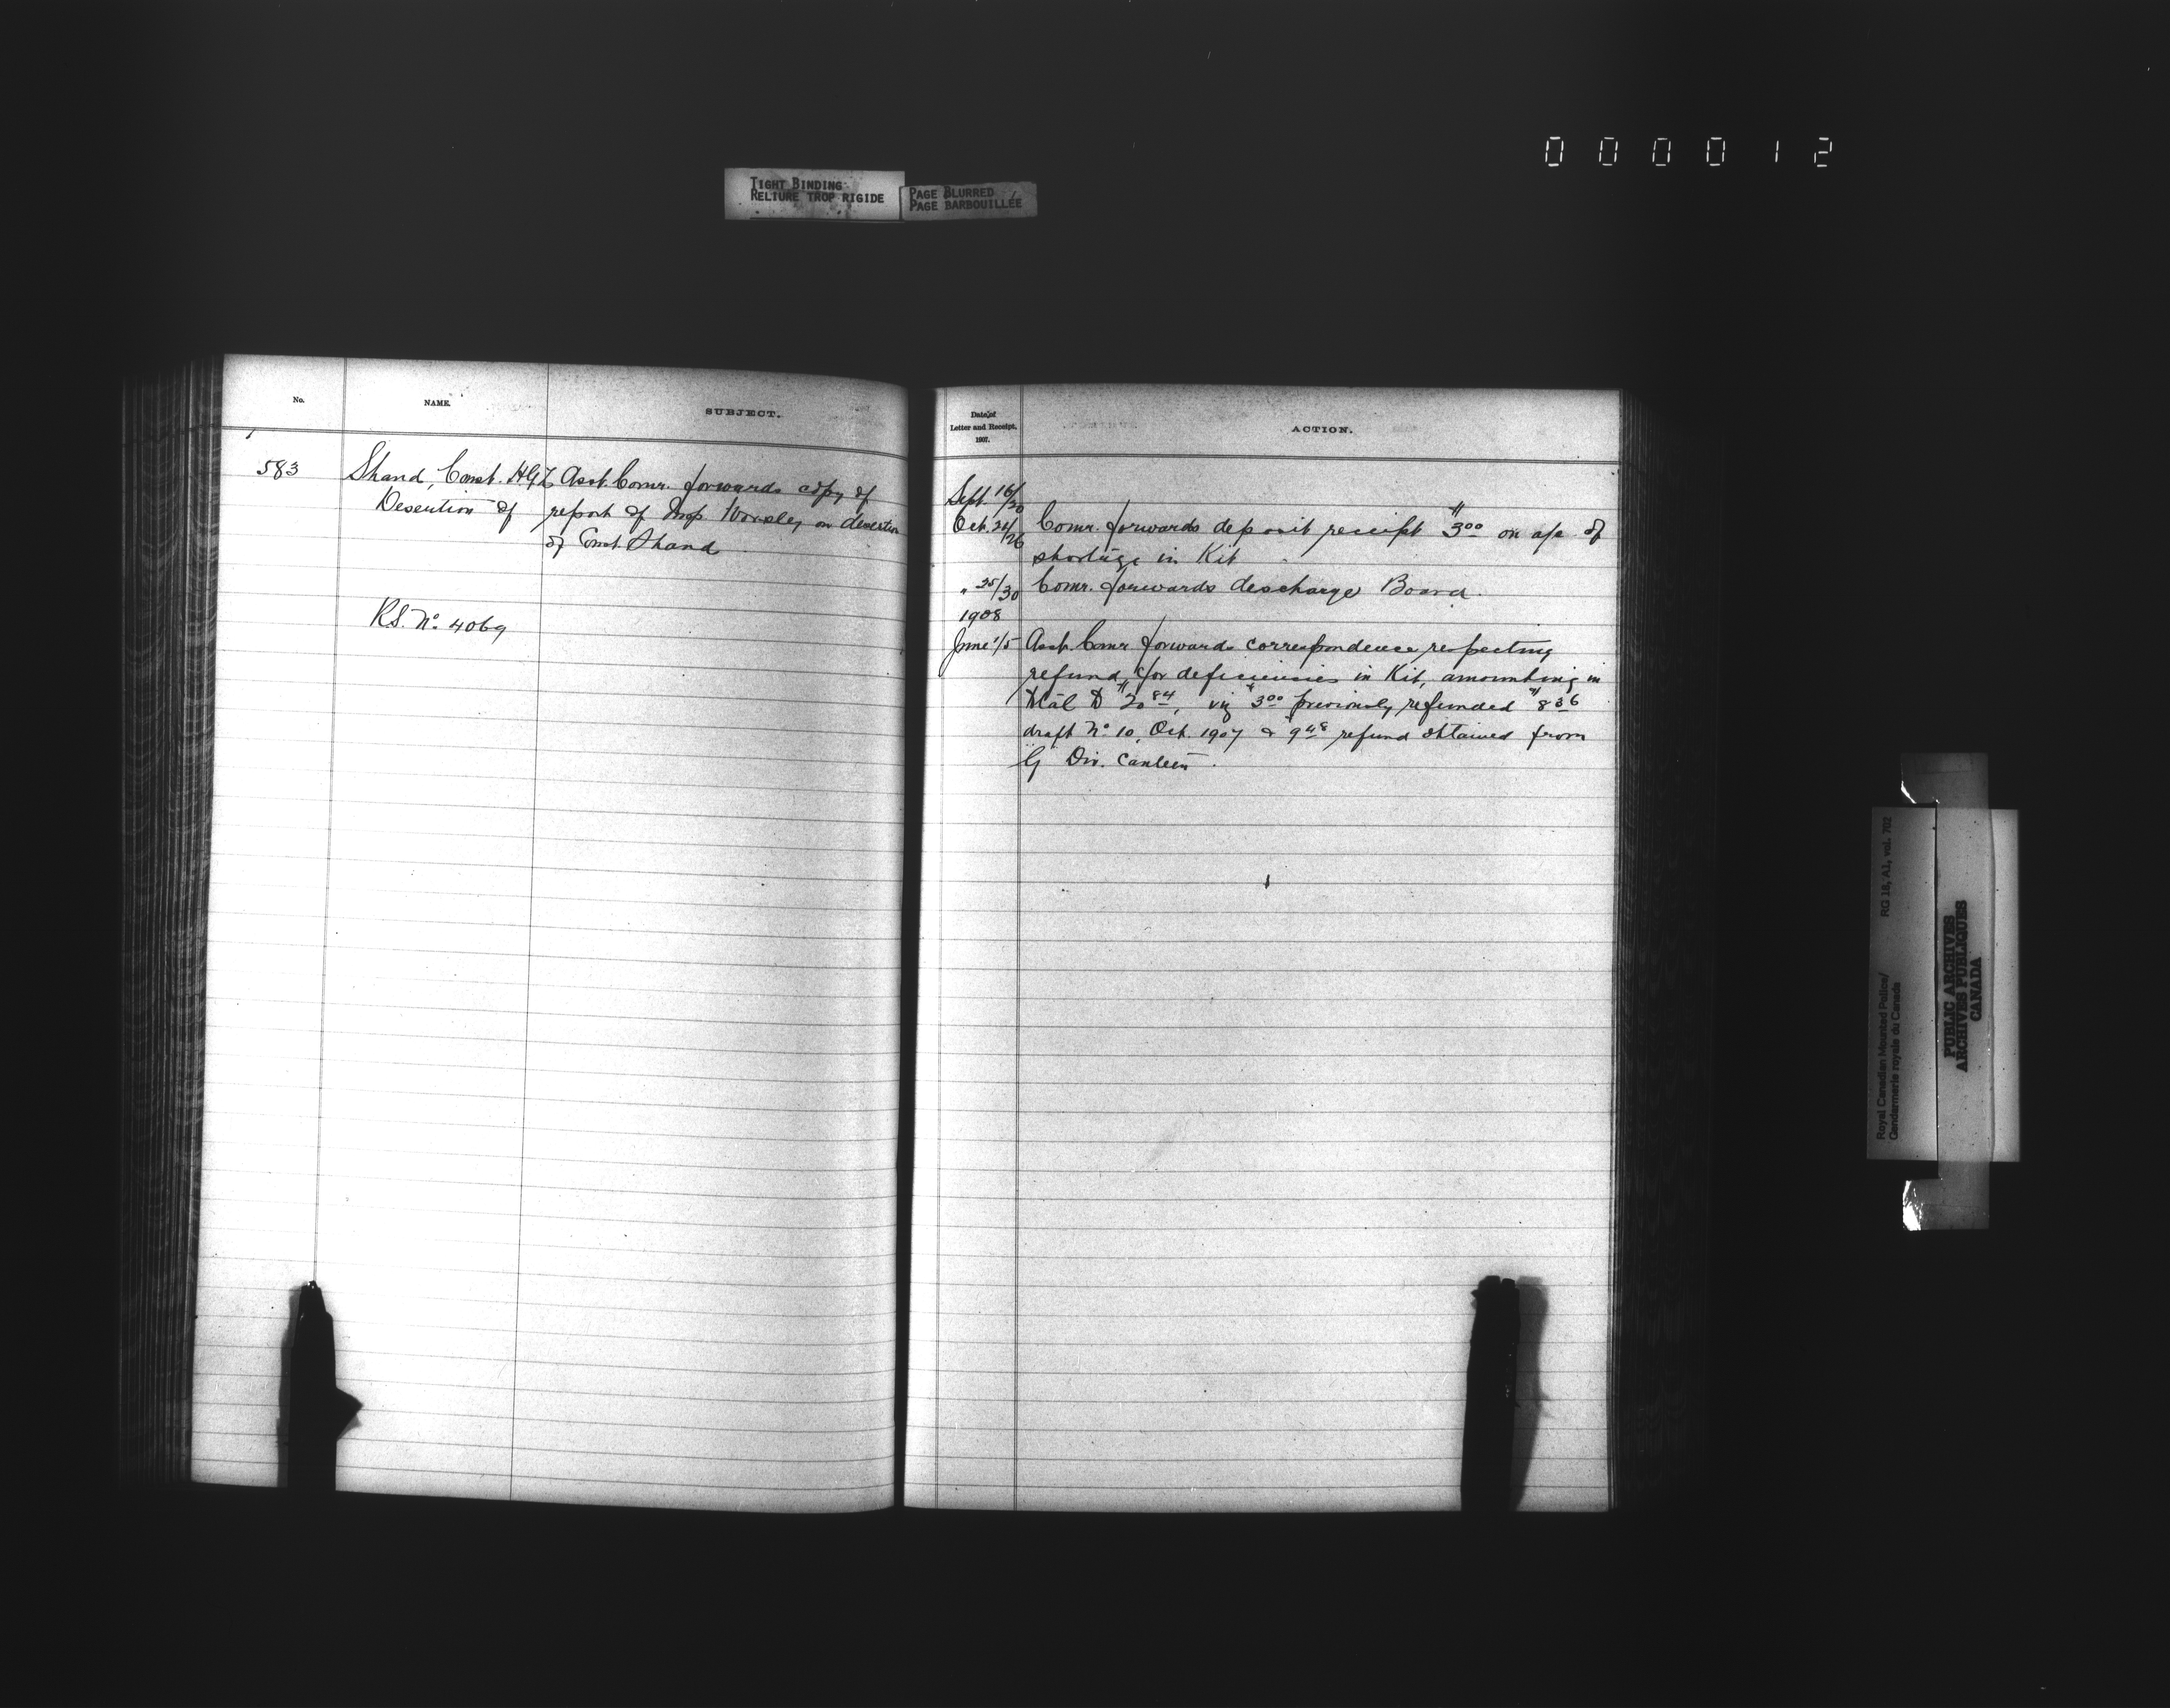 000012
TIGHT BINDING
RELIURE TROP RIGIDE
PAGE BLURRED
PAGE BARBOUILLÉE
No.
NAME.
SUBJECT.
583
Shand, Const. H.G.L.
Desertion of
R.S. No. 4069
Asst. Comr. forwards copy of
report of Insp Worsley on desertion
of Const. Shand
Date of
Letter and Receipt,
1907.
ACTION.
Sept. 16/20
Oct. 24/26 Comr. forwards deposit receipt $3.00 on a/c of
shortage in Kit
" 25/30 Comr. forwards discharge Board.
1908
June 1/5 Asst. Comr forwards correspondence respecting
refund, for deficiencies in Kit, amounting in
total to $20.84, viz $3.00 previously refunded $8.36
draft No. 10, Oct. 1907 & $9.48 refund obtained from
G Div. Canteen.
Royal Canadian Mounted Police/
Gendarmerie royale du Canada
RG 18, A1, vol. 702
PUBLIC ARCHIVES
ARCHIVES PUBLIQUES
CANADA